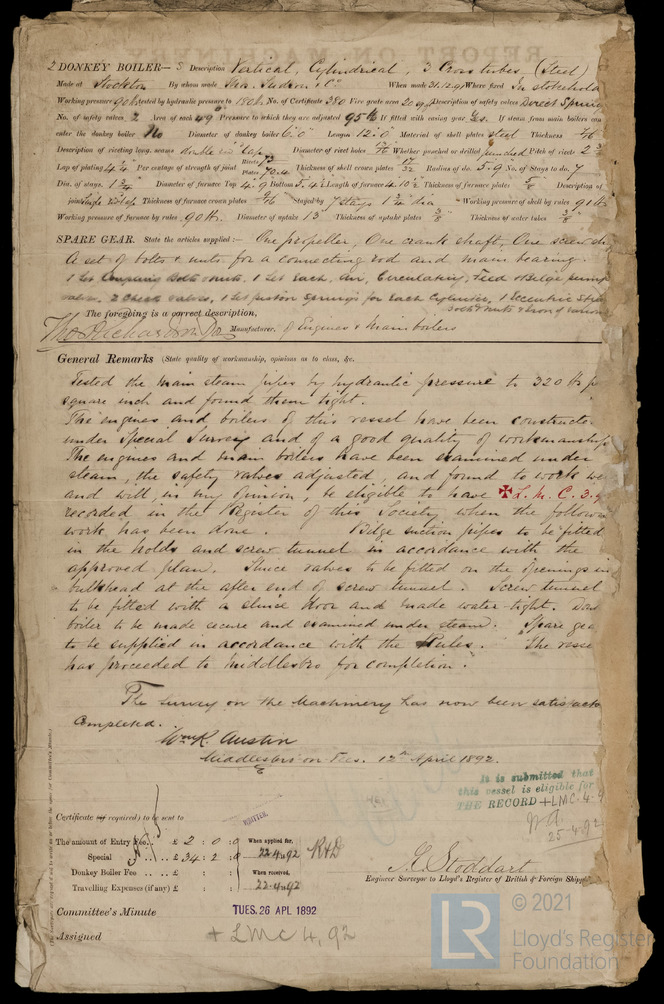 2 DONKEY BOILER— S Description Vertical, Cylindrical, 3 Cross tubes (Steel)
Made at Stockton By whom made Tho. Sudron & Co When made 31.12.91 Where fixed In stokehold
Working pressure 90 lbs tested by hydraulic pressure to 180 lbs No. of Certificate 380 Fire grate area 20.9 Description of safety valves Direct Spring
No. of safety valves 2 Area of each 4.9 Pressure to which they are adjusted 95 lb If fitted with easing gear Yes. If steam from main boilers can
enter the donkey boiler No Diameter of donkey boiler 6'0" Length 12'0" Material of shell plates steel Thickness
Description of riveting long. seams double Lap Diameter of rivet holes Whether punched or drilled punched Pitch of rivets 2
Lap of plating 4 1/4 Per centage of strength of joint Rivets 73 Plates 70.4 Thickness of shell crown plates 17/32 Radius of do. 5'-9" No. of Stays to do. 7
Dia. of stays. 1 3/4" Diameter of furnace Top 4'.9 Bottom 5'.4 1/2 Length of furnace 4'.10 1/2 Thickness of furnace plates Description of
joint single riv'd Lap Thickness of furnace crown plates Stayed by 7 stays 1 3/4" dia Working pressure of shell by rules 91 lb
Working pressure of furnace by rules 90 lb. Diameter of uptake 13" Thickness of uptake plates 3/8" Thickness of water tubes 3/8"
SPARE GEAR. State the articles supplied:— One propeller, One crank shaft, One screw sh
A set of bolts & nuts for a connecting rod and main bearing.
1 Set Coupling Bolts & nuts, 1 Set Each, Air, Circulating, Feed & Bilge pump
valves, 2 Check valves, 1 Set piston Springs for Each Cylinder, 1 Eccentric Strap
bolts & nuts & iron of various
The foregoing is a correct description,
Tho. Richardson & Sons Manufacturer. of Engines & Main boilers
General Remarks (State quality of workmanship, opinions as to class, &c.
Tested the main steam pipes by hydraulic pressure to 320 lbs p
square inch and found them tight.
The engines and boilers of this vessel have been constructe
under Special Survey and of a good quality of workmanship
The engines and main boilers have been examined under
steam, the safety valves adjusted, and found to work we
and will, in my opinion be eligible to have ✠ L.M.C. 3.9
recorded in the Register of this Society when the followin
work has been done. Bilge suction pipes to be fitted
in the holds and screw tunnel in accordance with the
approved plan. Sluice valves to be fitted on the openings in
bulkhead at the after end of screw tunnel. Screw tunnel
to be fitted with a sluice door and made water-tight. Don
boiler to be made secure and examined under steam. Spare gea
to be supplied in accordance with the Rules. The vesse
has proceeded to Middlesbro for completion.
The Survey on the Machinery has now been satisfacto
Completed.
Wm R. Austin
Middlesbro' on Tees. 12th April 1892.
It is submitted that
this vessel is eligible for
THE RECORD + LMC. 4.9
25-4-92
Certificate (if required) to be sent to
The amount of Entry Fee.. £ 2 : 0 : 0 When applied for,
Special .. .. £ 34 : 2 : 0 22.4.92
Donkey Boiler Fee .. .. £ : : When received,
Travelling Expenses (if any) £ : : 22.4.92
G. Stoddart
Engineer Surveyor to Lloyd's Register of British & Foreign Shipp
Committee's Minute TUES. 26 APL 1892
Assigned + LMC 4,92
© 2021
LR Lloyd's Register
Foundation